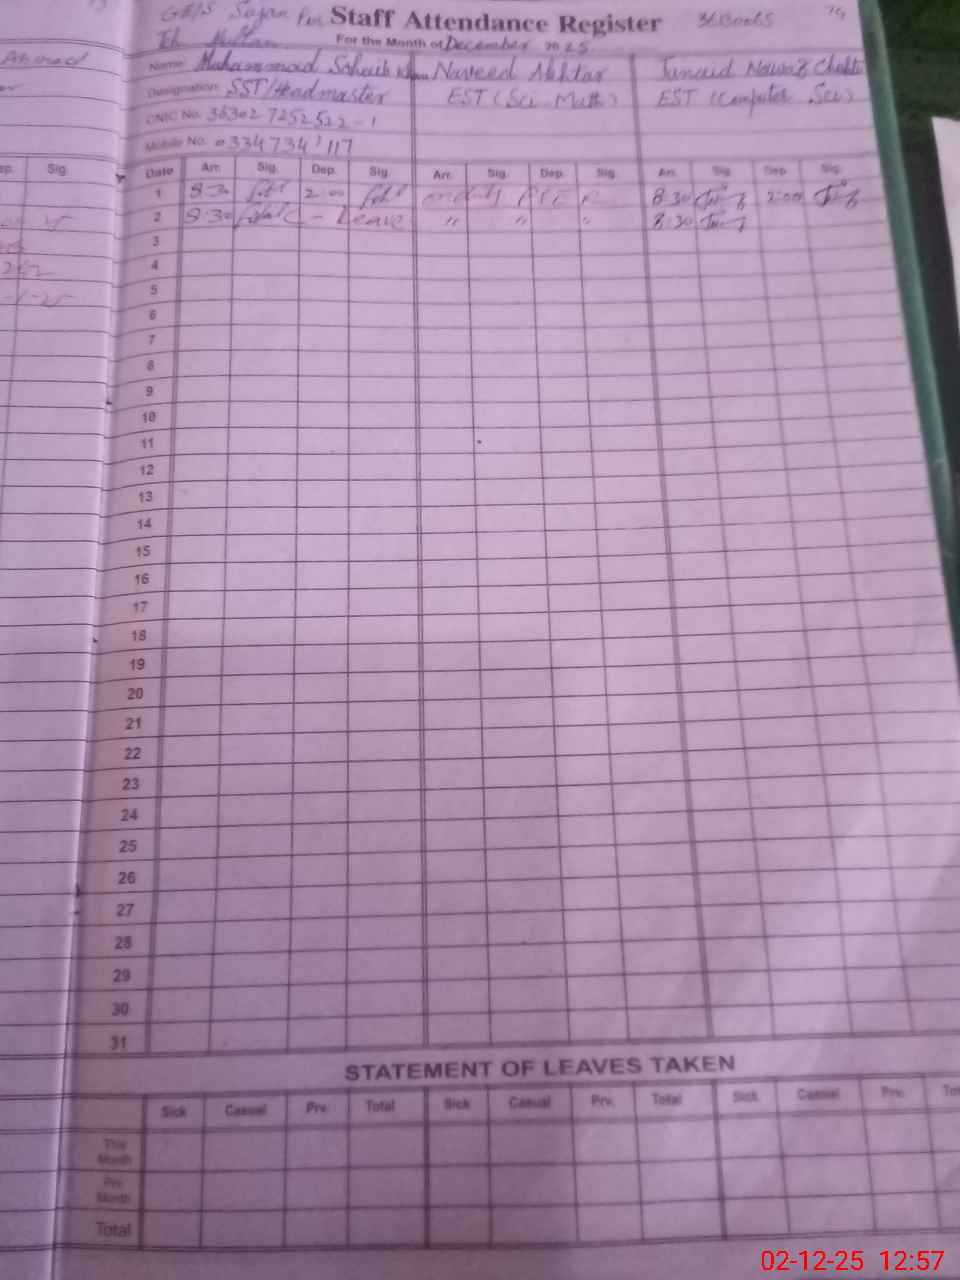 Staff Attendance Register
For the Month of December 2025
Name Muhammad Sohaib Khan Naveed Akhtar Junaid Nawaz
Designation SST/Headmaster EST (Sci Math) EST (Computer Sci)
CNIC No. 36302 7252522-1
Mobile No. 0334 734 117
Date Arr. Sig. Dep. Sig. Arr. Sig. Dep. Sig. Arr. Sig. Dep. Sig.
1 8:30 2:00 8:30 2:00
2 8:30 C-Leave " " " 8:30
3
4
5
6
7
8
9
10
11
12
13
14
15
16
17
18
19
20
21
22
23
24
25
26
27
28
29
30
31
STATEMENT OF LEAVES TAKEN
Sick Casual Prv. Total Sick Casual Prv. Total Sick Casual Prv.
This Month
Prv. Month
Total
02-12-25 12:57